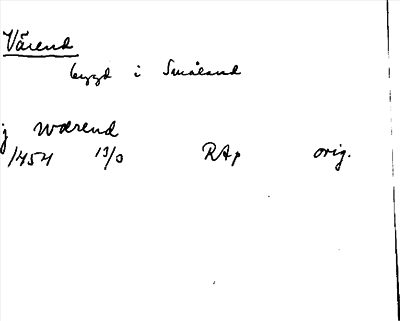 Värend
bygd i Småland
j wærend
1454 RAp orig.